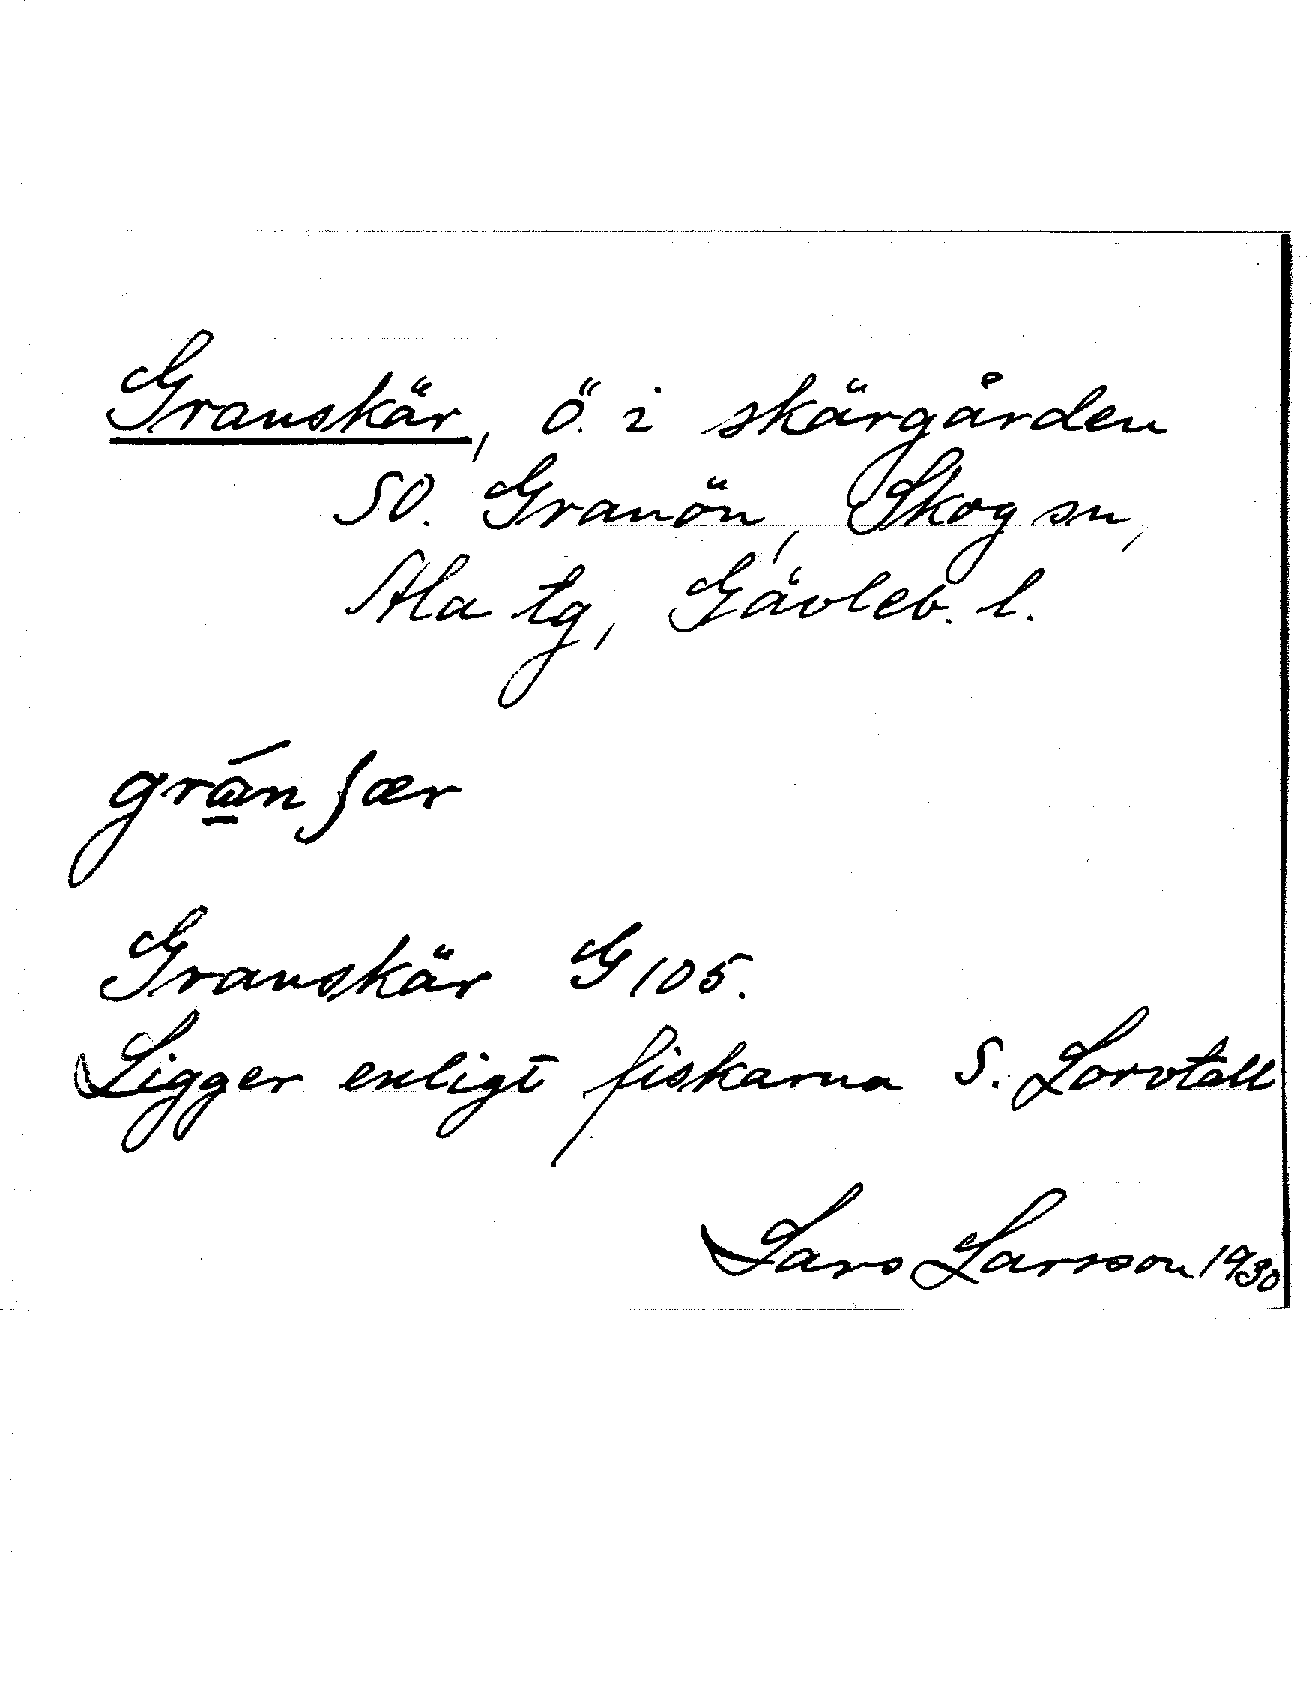 Granskär, ö. i skärgården
SO. Granön, Skog sn,
Ala tg, Gävleb. l.
grán ʃær
Granskär G 105.
Ligger enligt fiskarna S. Lorvtall
Lars Larsson 1930